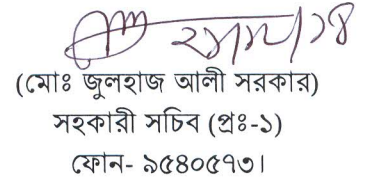 (মোঃ জুলহাজ আলী সরকার)
সহকারী সচিব (প্রঃ-১)
ফোন- ৯৫৪০৫৭৩।